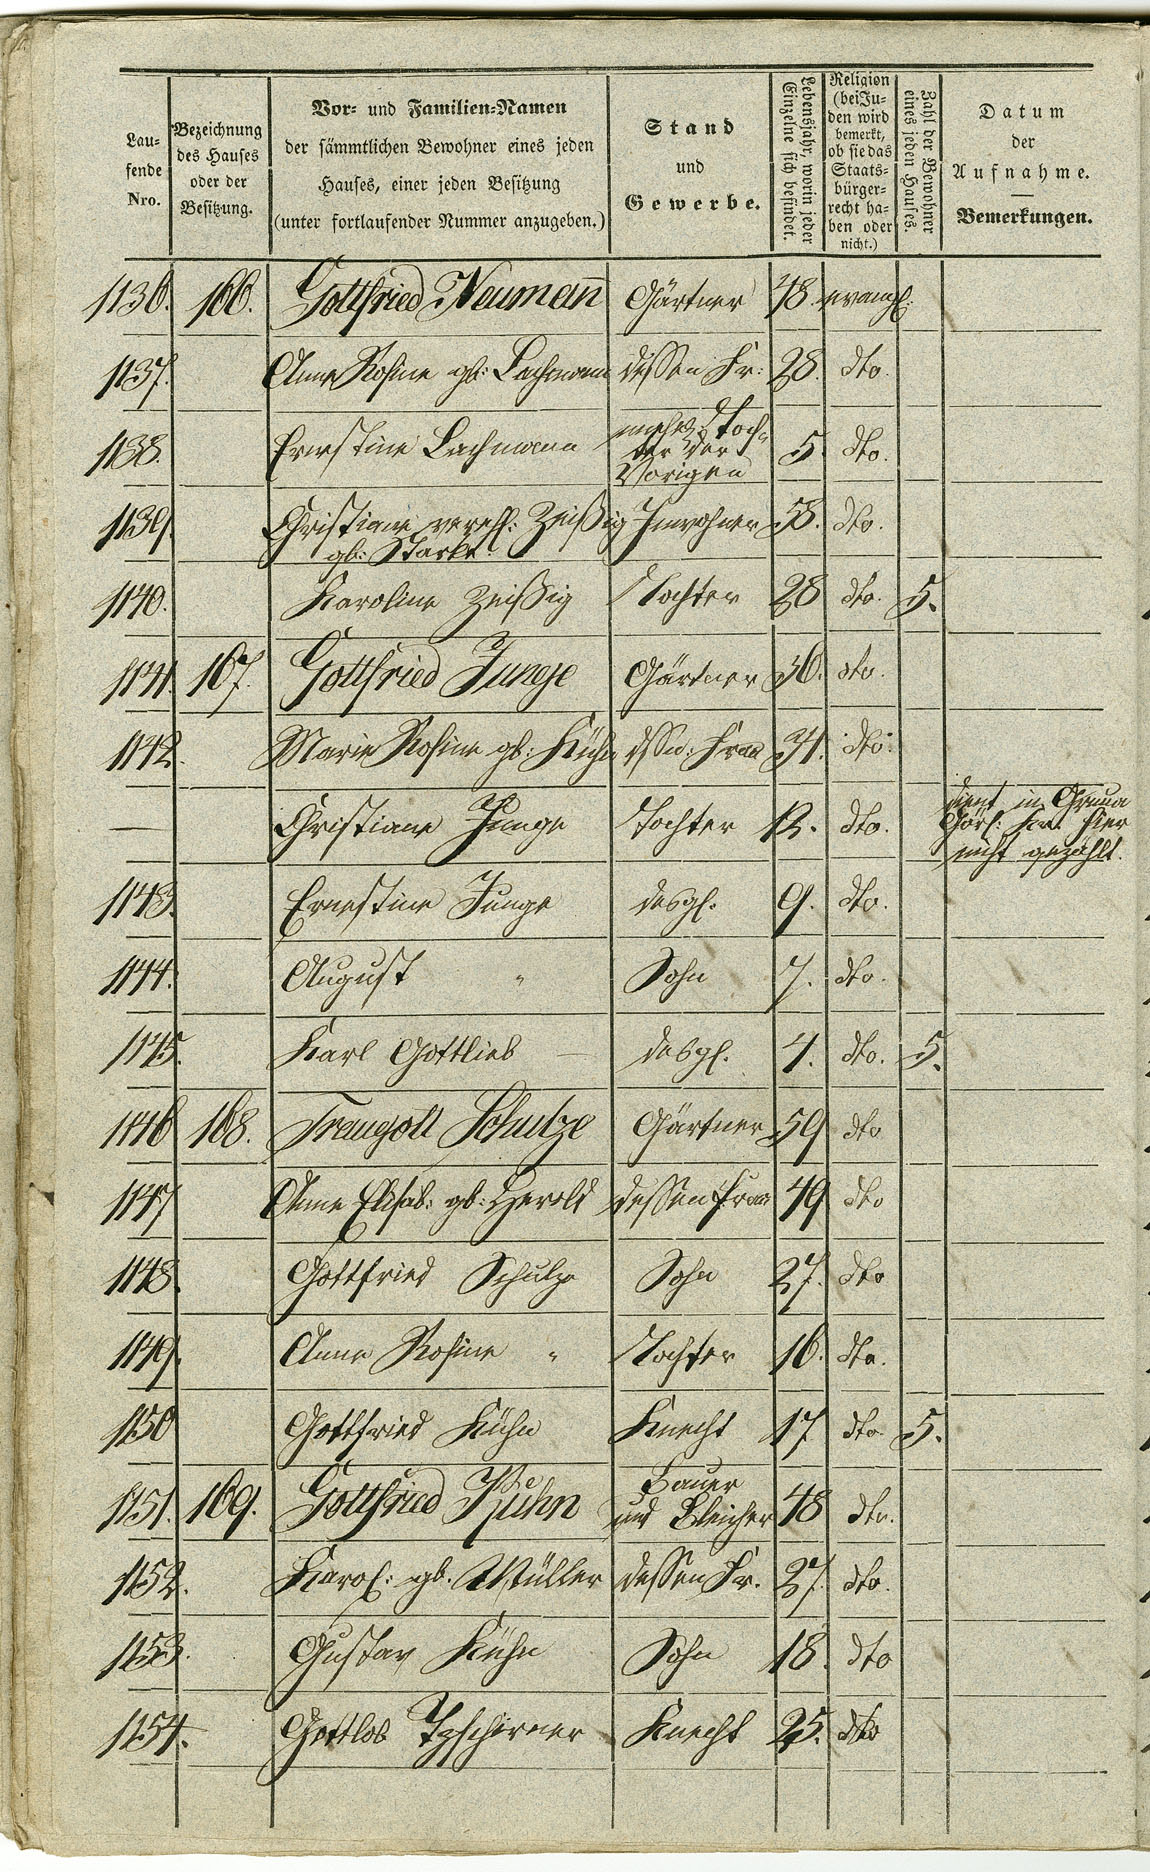 Laufende Nro.
Bezeichnung des Hauses oder der Besitzung.
Vor- und Familien-Namen
der sämmtlichen Bewohner eines jeden
Hauses, einer jeden Besitzung
(unter fortlaufender Nummer anzugeben.)
Stand
und
Gewerbe.
Lebensjahr, worin jeder Einzelne sich befindet.
Religion (bei Juden wird bemerkt, ob sie das Staatsbürgerrecht haben oder nicht.)
Zahl der Bewohner eines jeden Hauses.
Datum
der
Aufnahme.
Bemerkungen.
1136. 166. Gottfried Neumann Gärtner 48. evangl:
1137. Anne Rosine gb: Lachmann dessen Fr: 28. dto.
1138. Ernestine Lachmann Toch= 5. dto.
ter der
Vorigen
1139. Christiane verehl: Zeißig Inwohner 58. dto.
gb: Starke.
1140. Karoline Zeißig Tochter 28 dto. 5.
1141. 167. Gottfried Junge Gärtner 36. dto.
1142. Marie Rosine gb: Kühn dssn: Frau 34. dto.
— Christiane Junge Tochter 12. dto. dient in Gruna
Görl: Kr. hier
nicht gezählt.
1143. Ernestine Junge desgl. 9. dto.
1144. August " Sohn 7. dto.
1145. Karl Gottlieb — desgl. 4. dto. 5.
1146 168. Traugott Schulze Gärtner 59 dto
1147 Anne Elisab: gb: Herold dessen Frau 49 dto
1148. Gottfried Schulze Sohn 27. dto
1149. Anne Rosine " Tochter 16. dto.
1150 Gottfried Kühn Knecht 17 dto 5.
1151. 169. Gottfried Kühn Bauer 48 dto.
und Bleicher
1152. Karol: gb. Müller dessen Fr. 27. dto.
1153. Gustav Kühn Sohn 18. dto
1154. Gottlob Tzschirner Knecht 25. dto